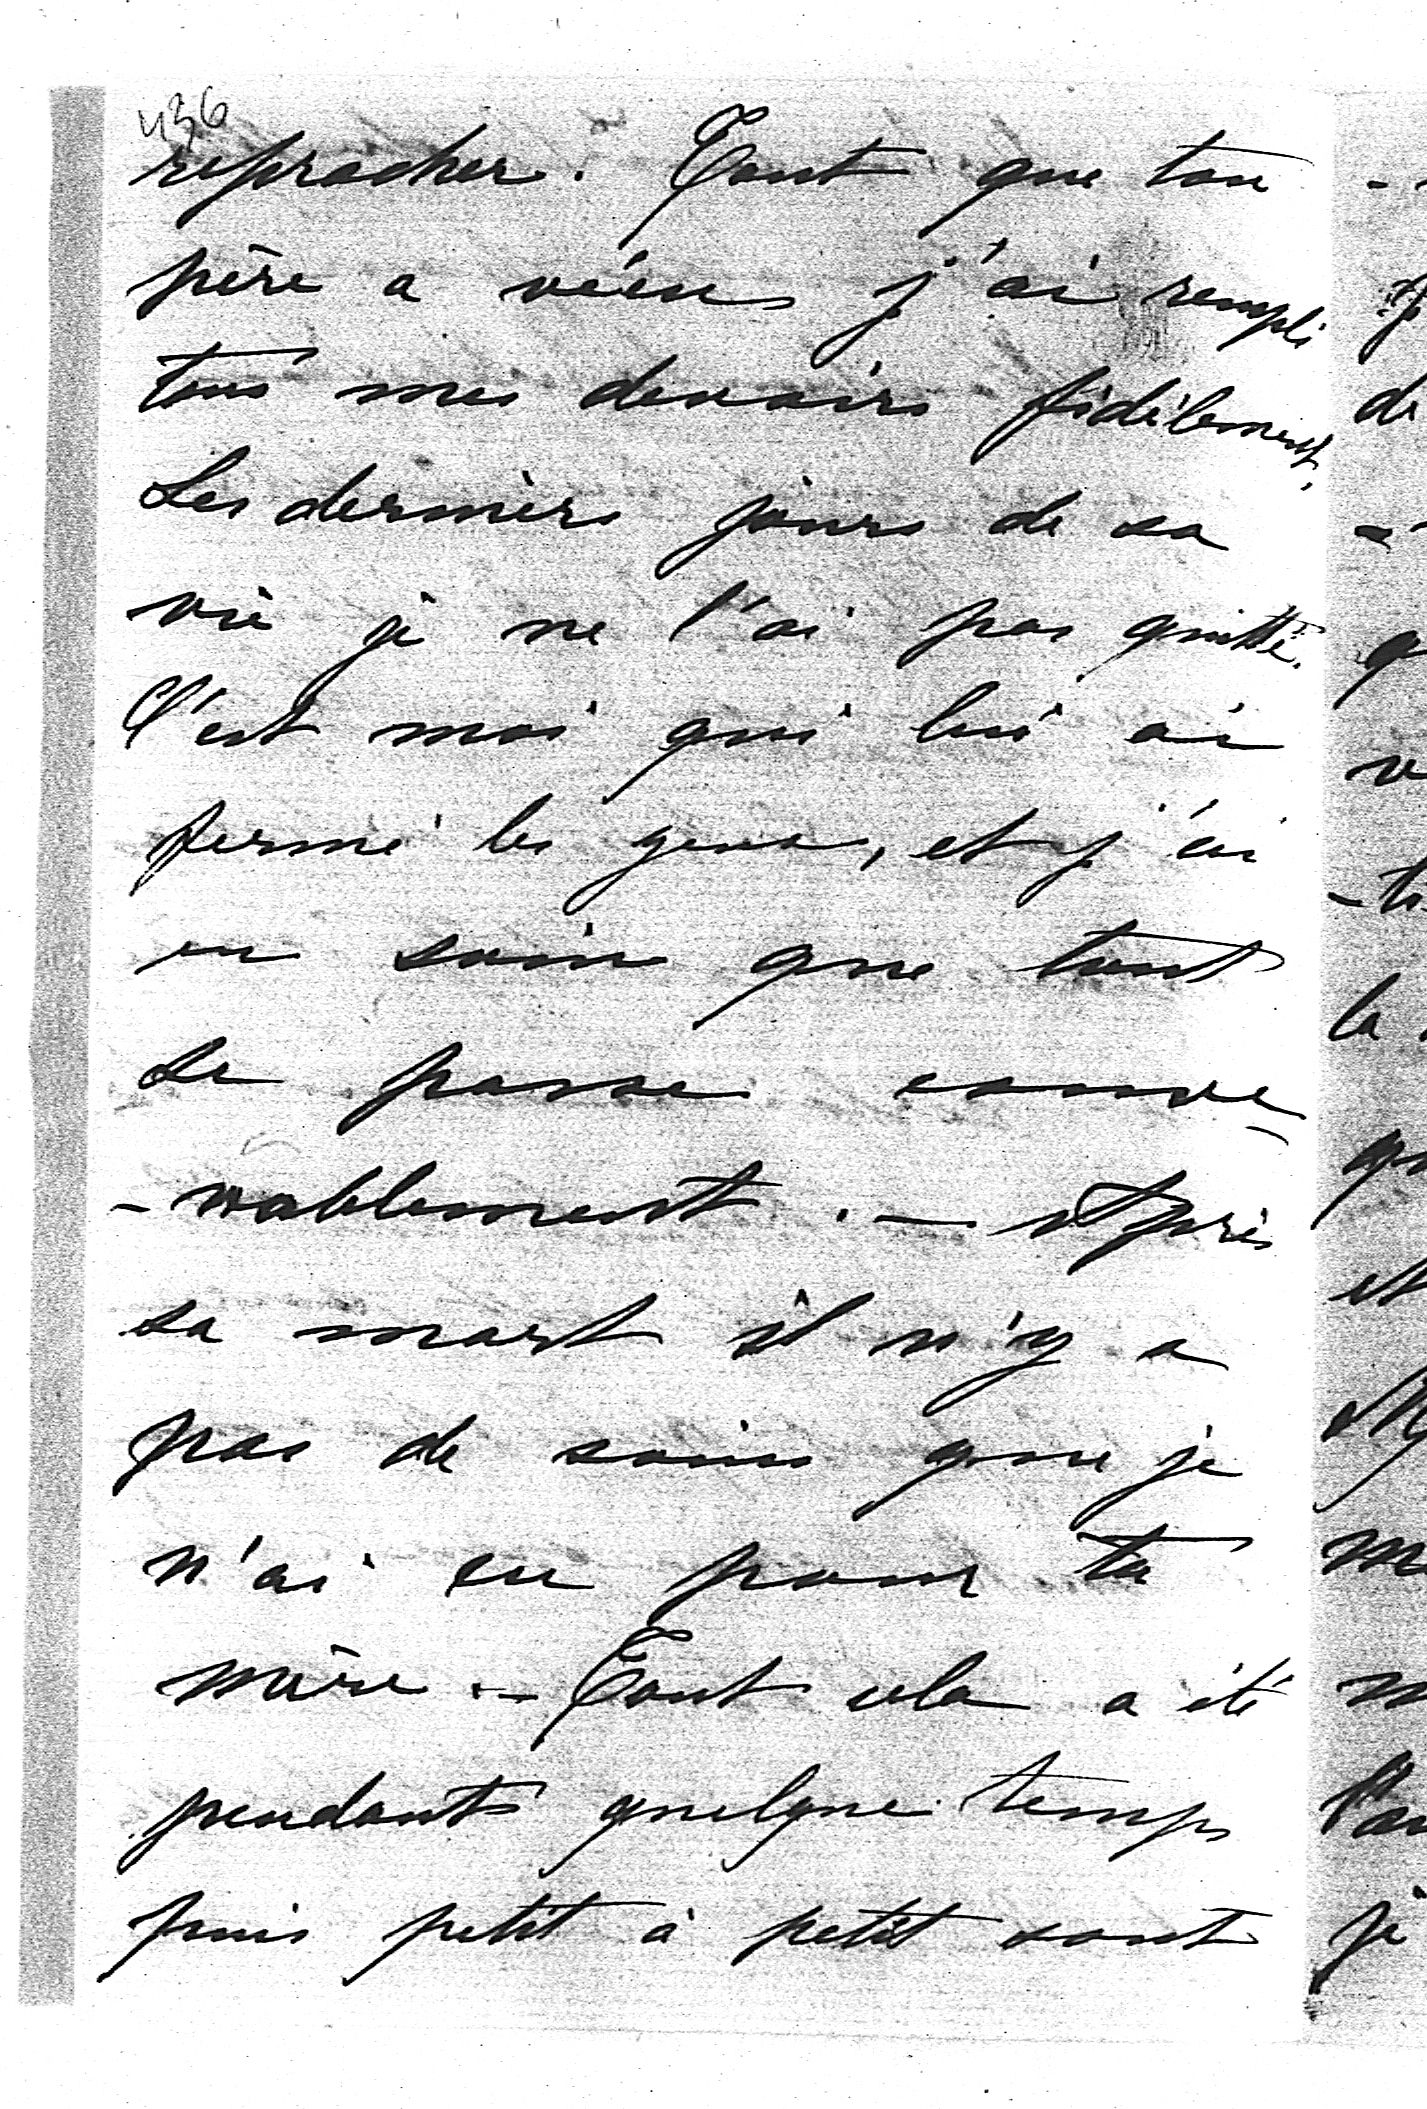 436
reprocher. Tant que ton
père a vécu, j'ai rempli
tous mes devoirs fidèlement.
Les derniers jours de sa
vie je ne l'ai pas quitté.
C'est moi qui lui ai
fermé les yeux, et j'ai
eu soin que tout
se passe conve
-nablement. — Après
sa mort il n'y a
pas de soins que je
n'ai eu pour ta
mère. — Tout cela a été
pendant quelque temps
puis petit à petit sont